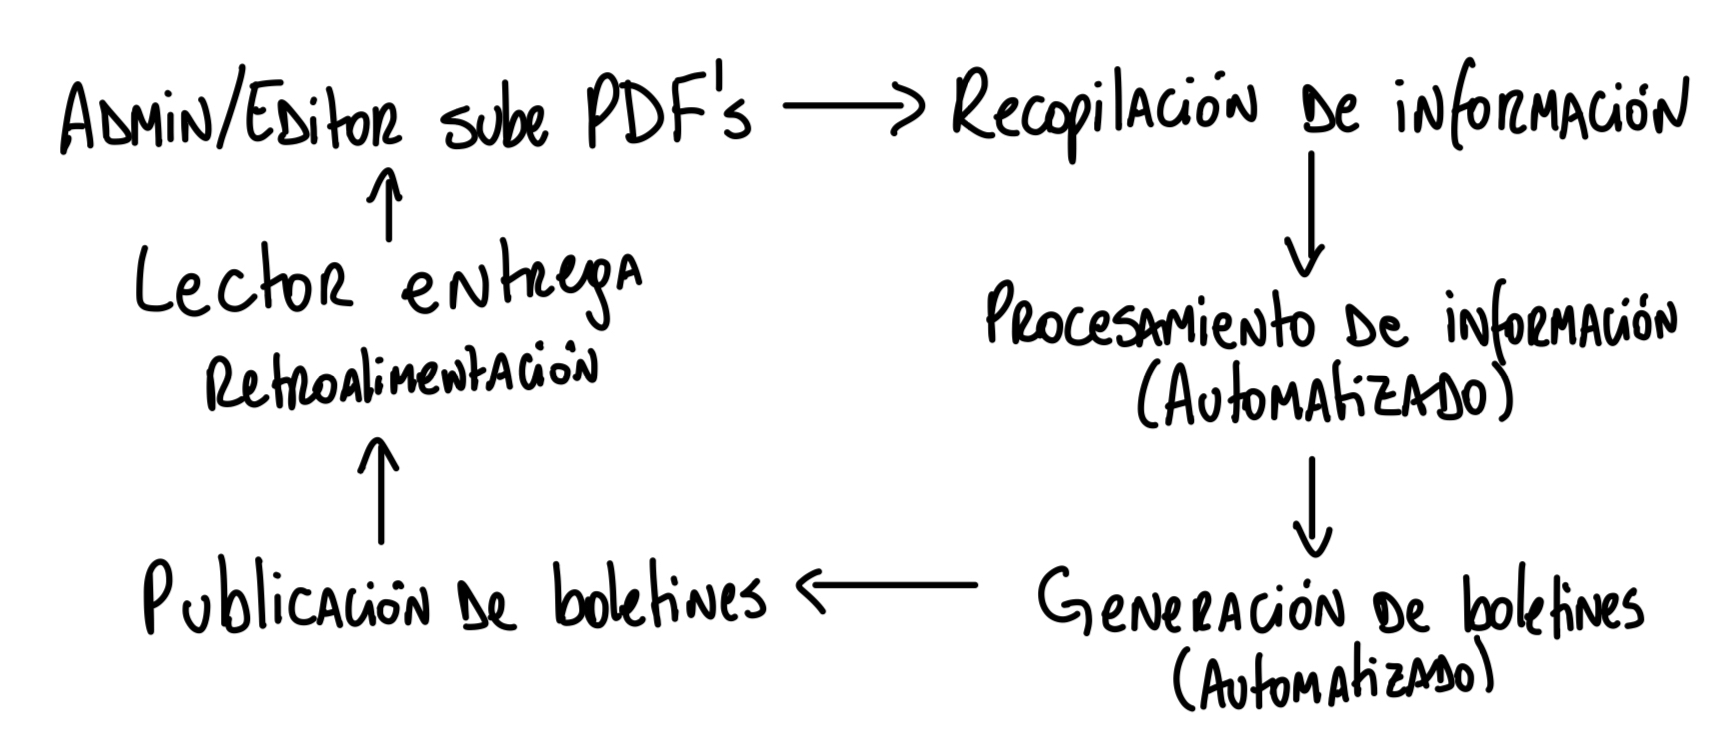 Admin/Editor sube PDF's
Recopilación de información
Procesamiento de información
(Automatizado)
Generación de boletines
(Automatizado)
Publicación de boletines
Lector entrega
retroalimentación